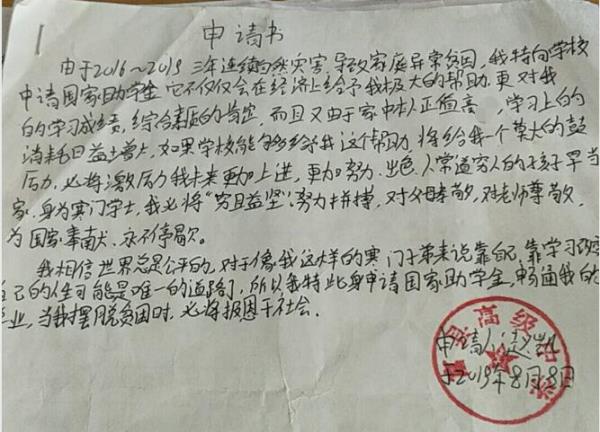 申请书
由于2016~2019三年连续自然灾害导致家庭异常贫困，我特向学校
申请国家助学金，它不仅仅会在经济上给予我极大的帮助，更对我
的学习成绩，综合素质的肯定，而且又由于家中本人正值高，学习上的
消耗日益增大，如果学校能够给我这个帮助，将给我一个莫大的鼓
励，必将激励我未来更加上进，更加努力，出色。人常道穷人的孩子早当
家，身为寒门学士，我必将“穷且益坚”，努力拼搏，对父母孝敬，对老师尊敬，
为国家奉献，永不停歇。
我相信世界总是公平的，对于像我这样的寒门子弟来说靠自己，靠学习改变
自己的人生可能是唯一的道路了，所以我特此身申请国家助学金，畅通我的
学业，当我摆脱贫困时，必将报恩于社会．
申请人：
于2019年8月8日
县高级中学